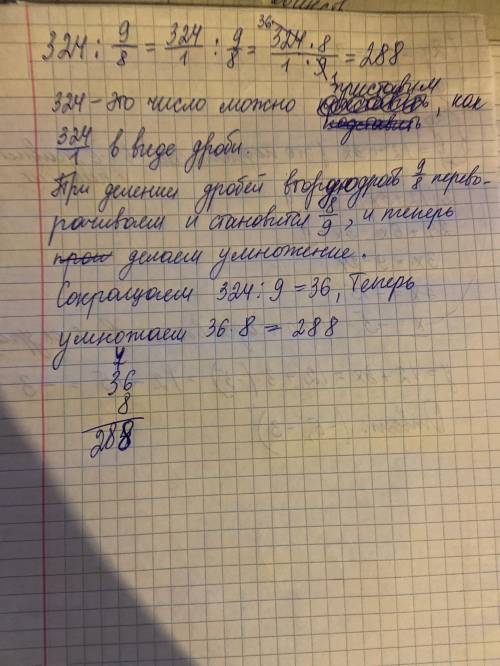 324 : 9/8 = 324/1 : 9/8 = 324 · 8 / 1 · 9 = 288
36
1
324 – это число можно приставим, как
324/1 в виде дроби.
При делении дробей вторую дробь 9/8 перево-
рачиваем и становится 8/9, и теперь
делаем умножение.
Сокращаем 324 : 9 = 36, Теперь
умножаем 36 · 8 = 288
4
36
8
288